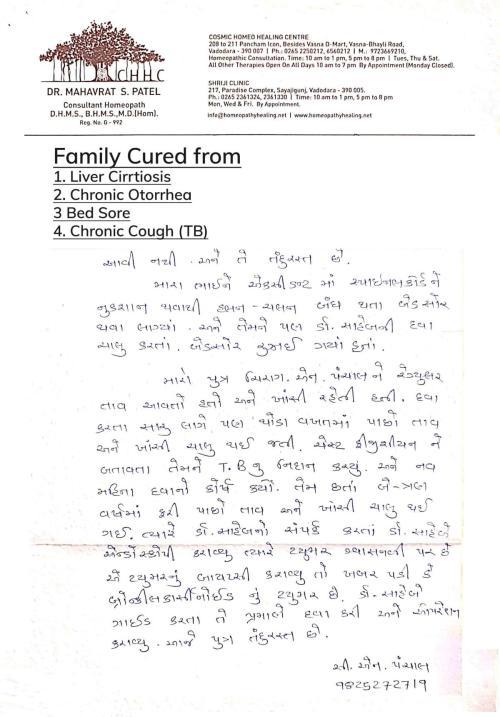 CHHC
DR. MAHAVRAT S. PATEL
Consultant Homeopath
D.H.M.S., B.H.M.S.,M.D.(Hom).
Reg. No. G - 992
COSMIC HOMEO HEALING CENTRE
208 to 211 Pancham Icon, Besides Vasna D-Mart, Vasna-Bhayli Road,
Vadodara - 390 007 | Ph.: 0265 2250212, 6560212 | M.: 9723669210,
Homeopathic Consultation. Time: 10 am to 1 pm, 5 pm to 8 pm | Tues, Thu & Sat.
All Other Therapies Open On All Days 10 am to 7 pm By Appointment (Monday Closed).
SHRIJI CLINIC
217, Paradise Complex, Sayajigunj, Vadodara - 390 005.
Ph.: 0265 2361324, 2361330 | Time: 10 am to 1 pm, 5 pm to 8 pm
Mon, Wed & Fri. By Appointment.
info@homeopathyhealing.net | www.homeopathyhealing.net
Family Cured from
1. Liver Cirrtiosis
2. Chronic Otorrhea
3 Bed Sore
4. Chronic Cough (TB)
આવી નથી. અને તે તંદુરસ્ત છે.
મારા ભાઈને એકસીડન્ટ માં સ્પાઇનલકોર્ડ ને
નુકશાન થવાથી હલન-ચલન બંધ થતા બેડસોર
થવા લાગ્યાં. અને તેમને પણ ડૉ. સાહેબની દવા
ચાલુ કરતાં. બેડસોર રુઝાઈ ગયાં હતાં.
મારો પુત્ર ચિરાગ. એન. પંચાલ ને રેગ્યુલર
તાવ આવતો હતો અને ખાંસી રહેતી હતી. દવા
કરતા સારુ લાગે પણ થોડા વખતમાં પાછો તાવ
અને ખાંસી ચાલુ થઈ જતી. ચેસ્ટ ફીજીશીયન ને
બતાવતા તેમને T.B નુ નિદાન કર્યું. અને નવ
મહિના દવાનો કોર્ષ કર્યો. તેમ છતાં બે-ત્રણ
વર્ષમાં ફરી પાછો તાવ અને ખાંસી ચાલુ થઈ
ગઈ. ત્યારે ડૉ. સાહેબનો સંપર્ક કરતાં ડૉ. સાહેબે
એન્ડોસ્કોપી કરાવ્યુ ત્યારે ટયુમર શ્વાસનળી પર છે
એ ટયુમરનું બાયપ્સી કરાવ્યુ તો ખબર પડી કે
બ્રોન્કીલકાર્સીનોઈડ નું ટયુમર છે. ડૉ. સાહેબે
ગાઈડ કરતા તે પ્રમાણે દવા કરી અને ઓપરેશન
કરાવ્યુ. આજે પુત્ર તંદુરસ્ત છે.
સી. એન. પંચાલ
9825272719